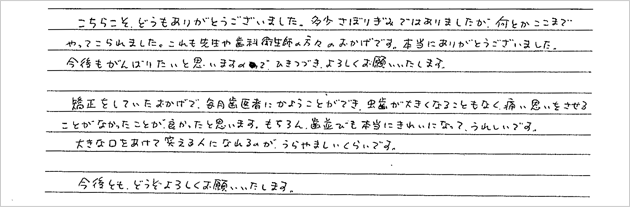 こちらこそ、どうもありがとうございました。多少さぼりぎみではありましたが、何とかここまで
やってこられました。これも先生や歯科衛生師の方々のおかげです。本当にありがとうございました。
今後もがんばりたいと思いますので、ひきつづきよろしくお願いいたします。
矯正をしていたおかげで、毎月歯医者にかようことができ、虫歯が大きくなることもなく、痛い思いをさせる
ことがなかったことが、良かったと思います。もちろん、歯並びも本当にきれいになって、うれしいです。
大きな口をあけて笑える人になれるのが、うらやましいくらいです。
今後とも、どうぞよろしくお願いいたします。